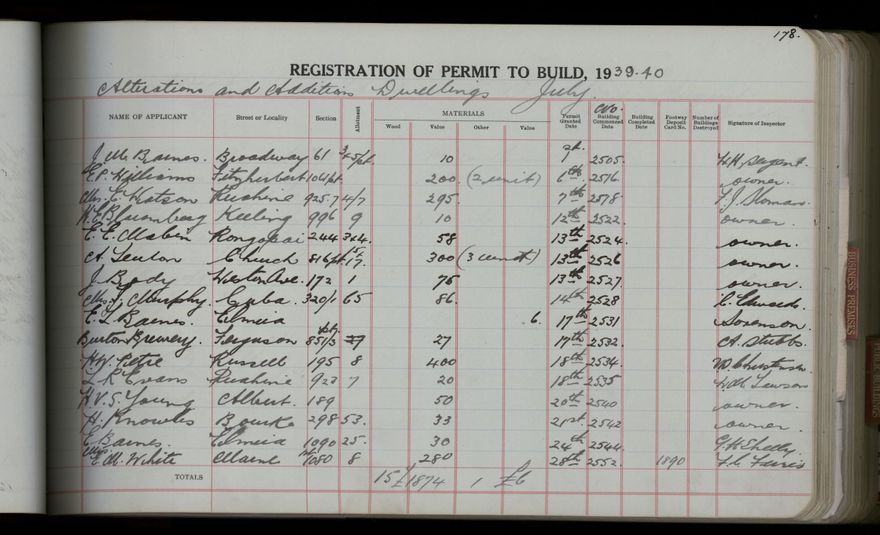 178.
REGISTRATION OF PERMIT TO BUILD, 1939-40
Alterations and Additions Dwellings July.
NAME OF APPLICANT Street or Locality Section Allotment MATERIALS Wood Value Other Value Permit Granted Date No. Building Commenced Date Building Completed Date Footway Deposit Card No. Number of Buildings Destroyed Signature of Inspector
J. M. Barnes. Broadway 61 10 1st. 2505.
E. P. Williams Fitzherbert 106/pt. 200. (2 unit) 6th 2516. owner.
Mrs. C. Watson Rushine 925.7 4/7 295. 7th 2518 F. J. Sloman
Bloomberg Keeling 996 9 10 12th 2522. owner.
E. E. Mabin Rongopai 244 3&4. 58 13th 2524. owner.
A. Lenton Church 816/pt 17. 300 (3 unit) 13th 2526 owner.
J. Body Weston Ave. 172 1 75 13th 2527. owner.
Mrs. J. Murphy. Cuba. 320/1 65 86. 14th 2528
E. L. Barnes. Elmira 6. 17th 2531 Sorenson.
Burton Brewery. Ferguson pt. 851/3 27 17th 2532. A. Stubbs.
H. Y. Petrie Russell 195 8 400 18th 2534.
L. R. Evans Rushine 923 7 20 18th 2535 Lawson
H. V. S. Young Albert. 189 50 20th 2540 owner.
H. Knowles Bourke 298 53. 33 21st. 2542 owner.
E. Barnes. Elmira 1090 25. 30 24th 2544. G. H. Shelly.
Mrs. E. M. White Marne 1080 8 280 28th 2552. 1890 Farris
TOTALS 15 £1874 1 £6
BUSINESS PREMISES